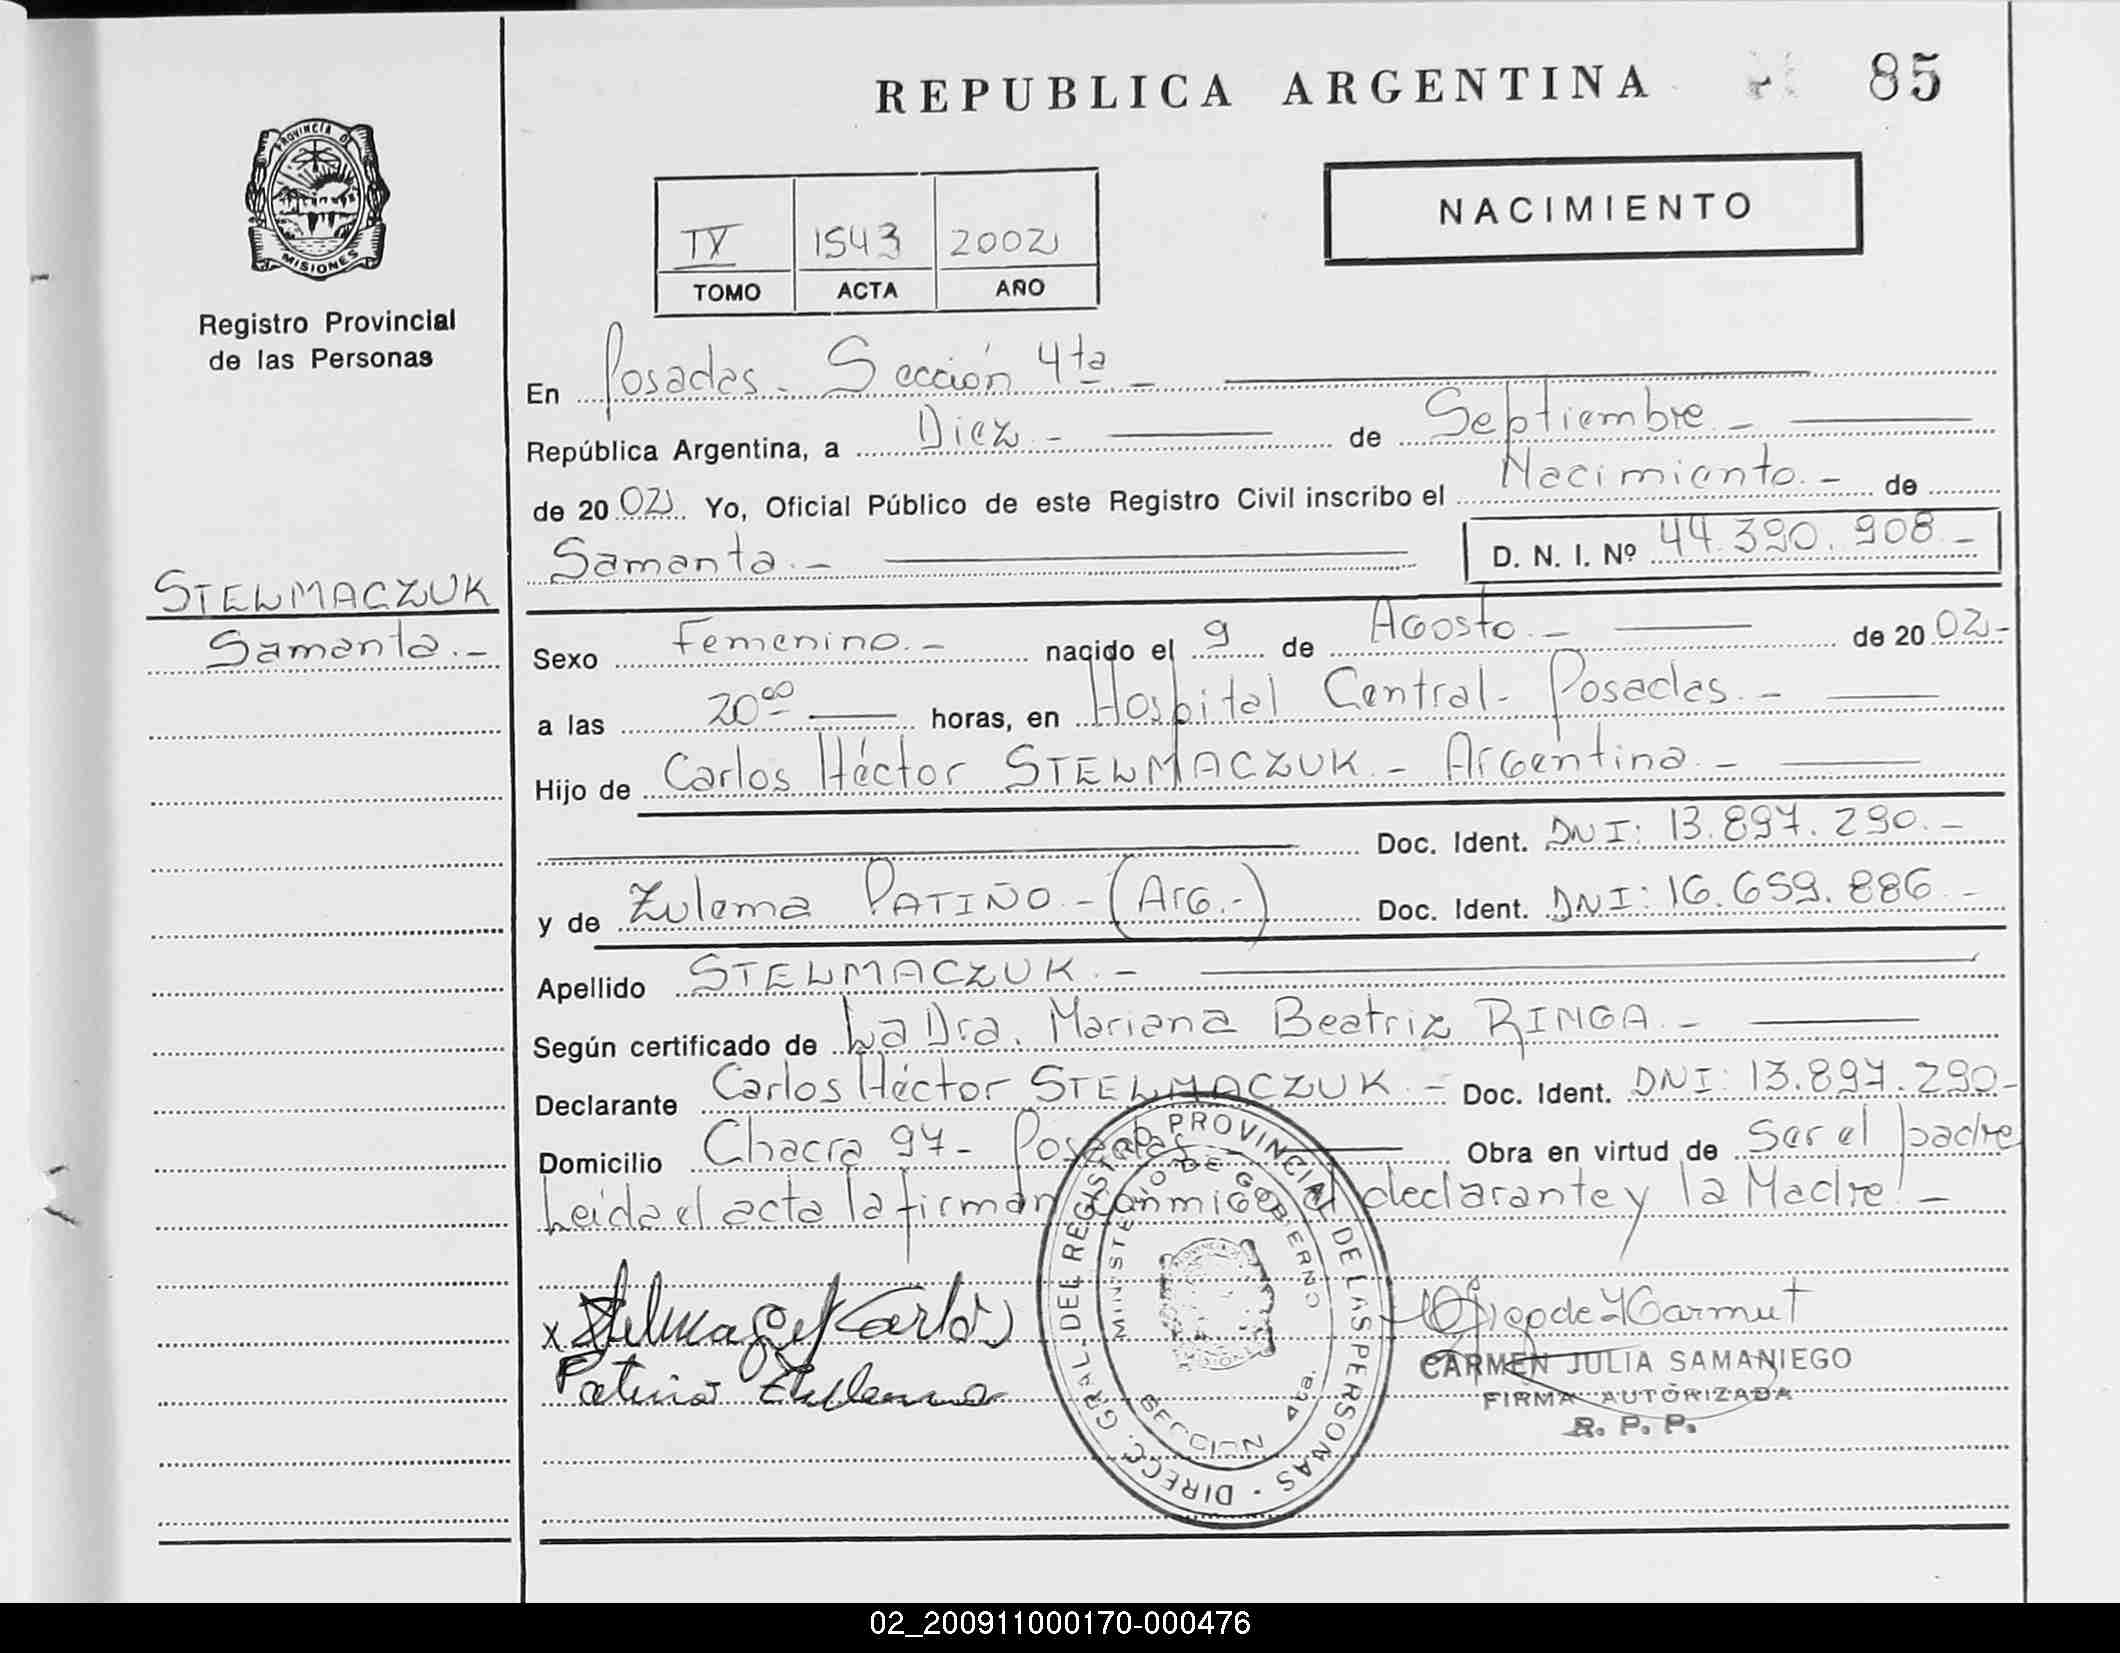 REPUBLICA ARGENTINA
85
PROVINCIA DE
MISIONES
Registro Provincial
de las Personas
IV 1543 2002
TOMO ACTA AÑO
NACIMIENTO
En Posadas - Sección 4ta -
República Argentina, a Diez - de Septiembre -
de 20 02 Yo, Oficial Público de este Registro Civil inscribo el Nacimiento - de
Samanta - D. N. I. Nº 44.390.908 -
STELMACZUK
Samanta. -
Sexo Femenino. - nacido el 9 de Agosto - de 20 02 -
a las 20 00 horas, en Hospital Central - Posadas. -
Hijo de Carlos Héctor STELMACZUK - Argentina -
Doc. Ident. DNI: 13.897.290. -
y de Zulema PATIÑO - (Arg. -) Doc. Ident. DNI: 16.659.886 -
Apellido STELMACZUK. -
Según certificado de La Dra. Mariana Beatriz RINGA. -
Declarante Carlos Héctor STELMACZUK. - Doc. Ident. DNI: 13.897.290 -
Domicilio Chacra 97 - Posadas Obra en virtud de Ser el padre
Leída el acta la firman conmigo el declarante y la Madre. -
x Stelmaczuk Carlos
Patiño Zulema
DIRECC. GRAL. DEL REGISTRO PROVINCIAL DE LAS PERSONAS
MINISTERIO DE GOBIERNO
SECCION 4ta.
CARMEN JULIA SAMANIEGO
FIRMA AUTORIZADA
R. P. P.
02_200911000170-000476